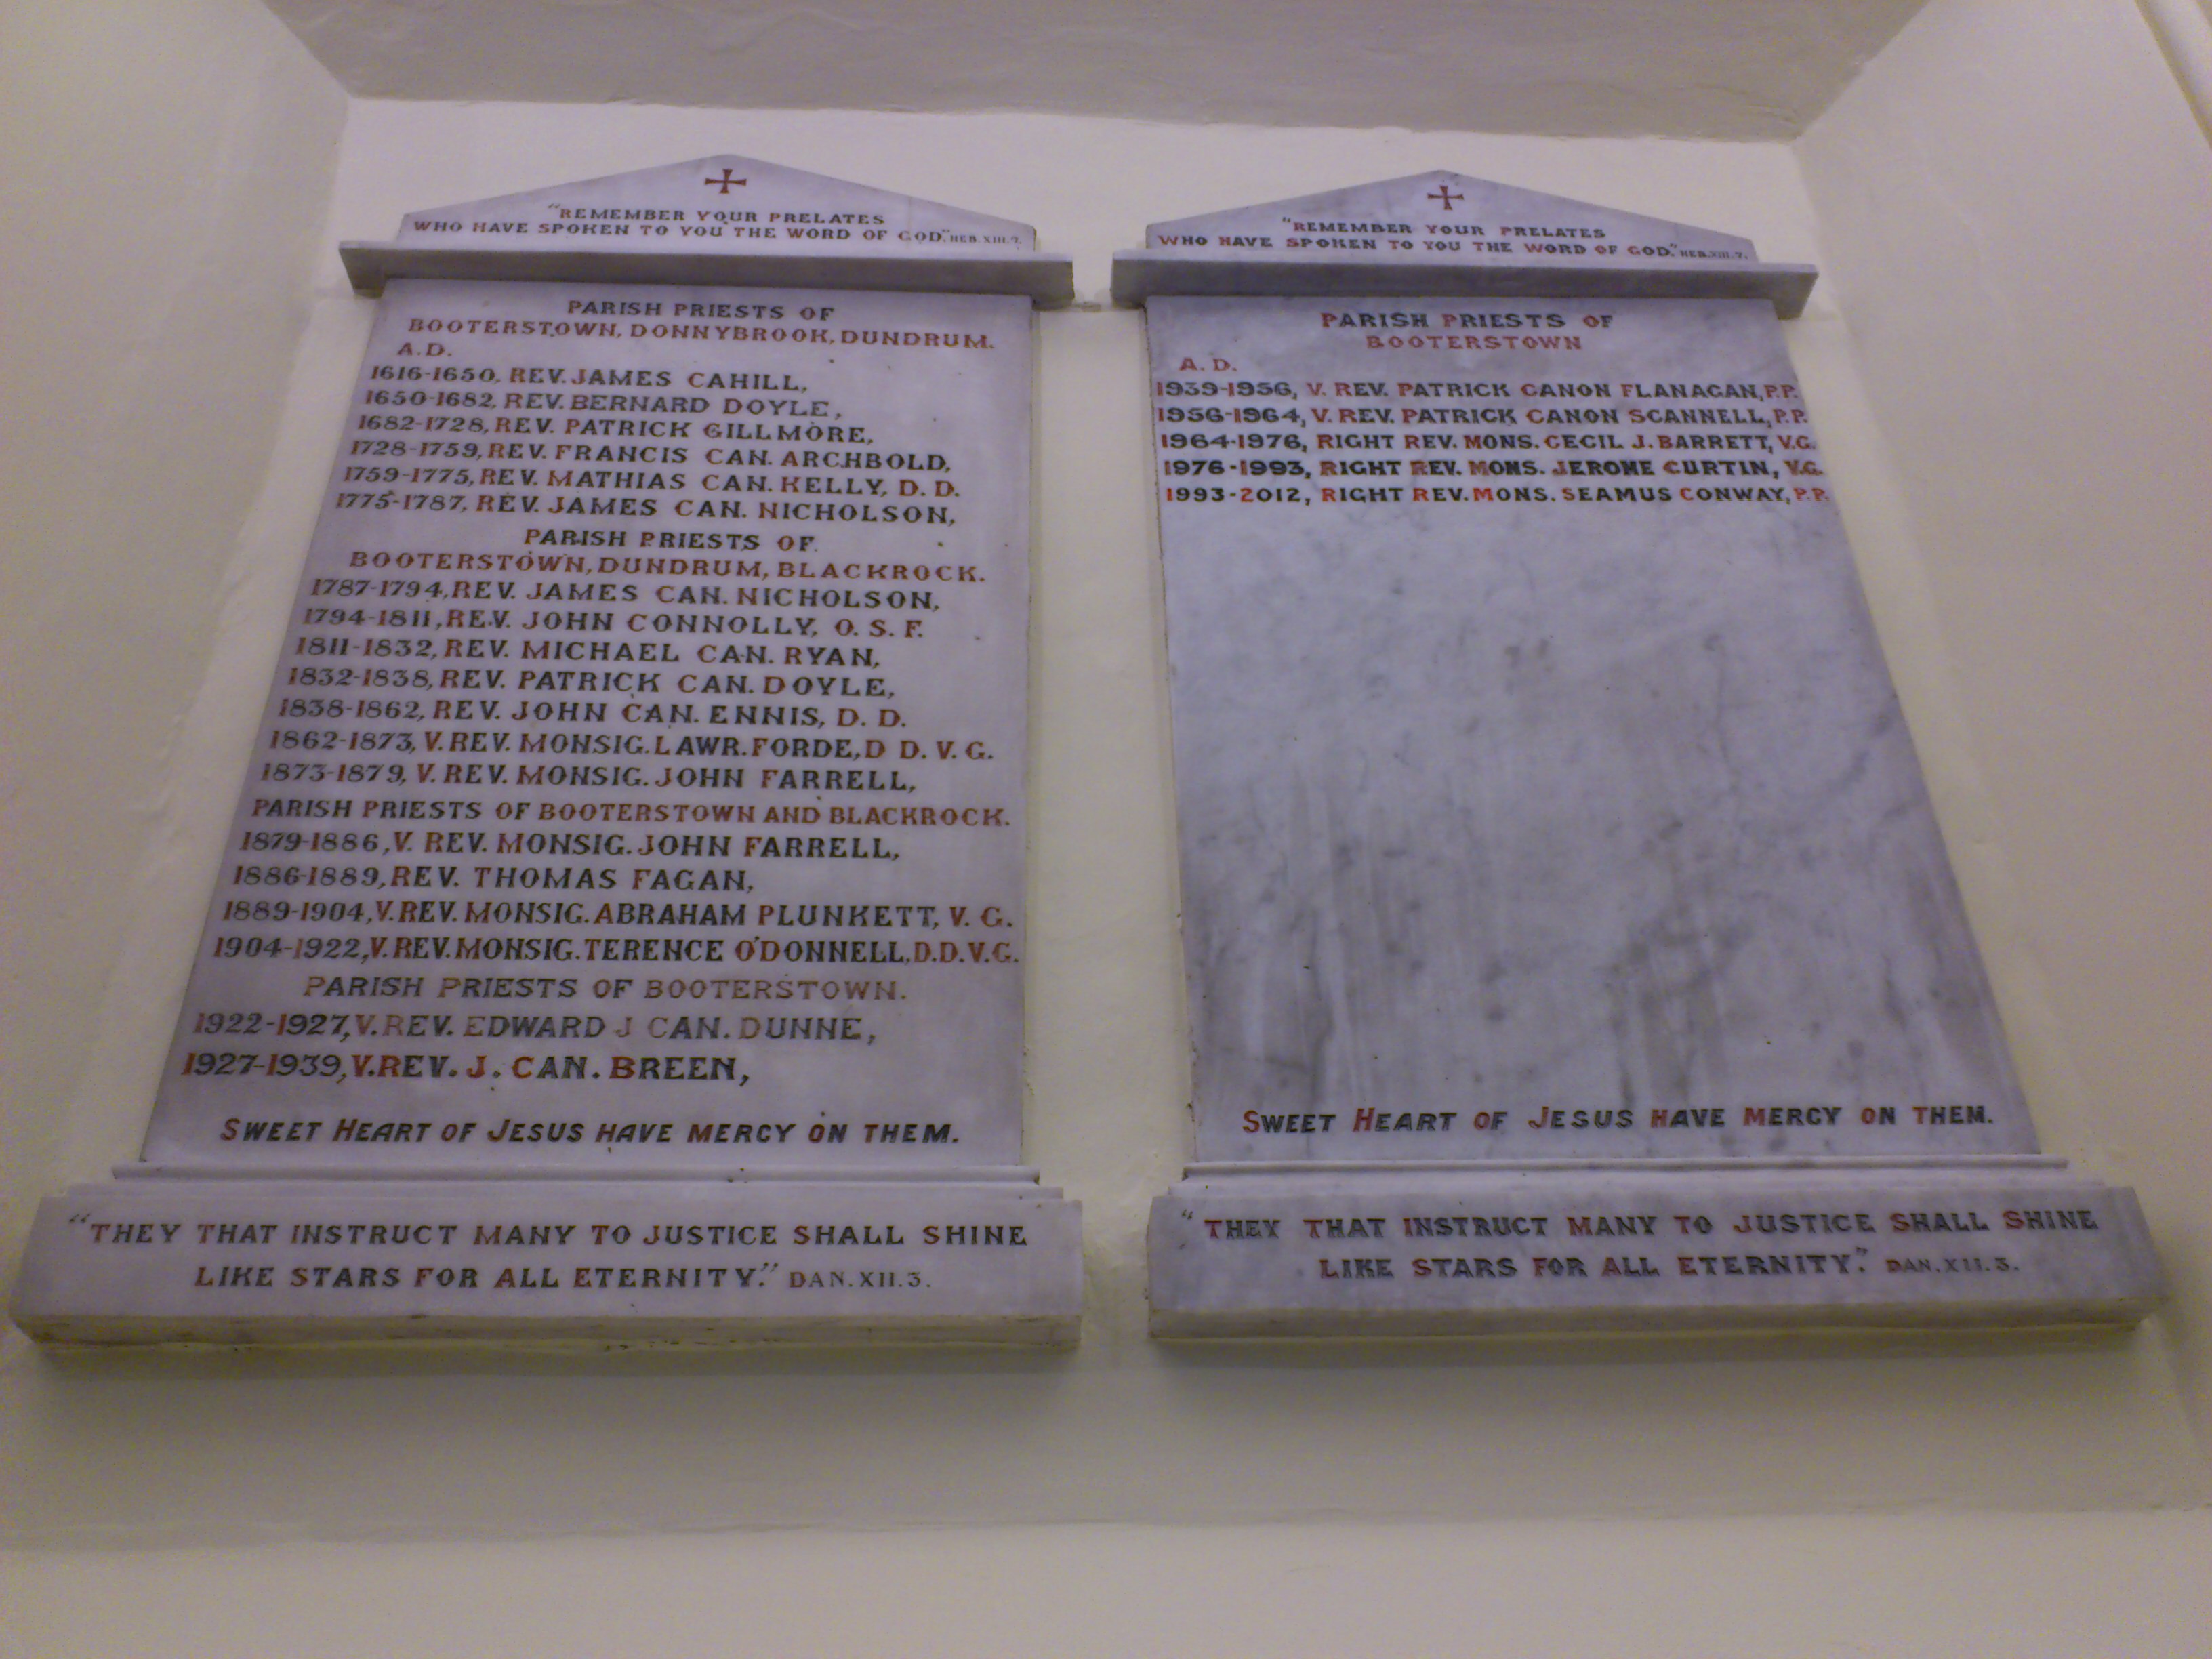 "REMEMBER YOUR PRELATES
WHO HAVE SPOKEN TO YOU THE WORD OF GOD." HEB. XIII. 7.
PARISH PRIESTS OF
BOOTERSTOWN, DONNYBROOK, DUNDRUM.
A.D.
1616-1650, REV. JAMES CAHILL,
1650-1682, REV. BERNARD DOYLE,
1682-1728, REV. PATRICK GILLMORE,
1728-1759, REV. FRANCIS CAN. ARCHBOLD,
1759-1775, REV. MATHIAS CAN. KELLY, D. D.
1775-1787, REV. JAMES CAN. NICHOLSON,
PARISH PRIESTS OF
BOOTERSTOWN, DUNDRUM, BLACKROCK.
1787-1794, REV. JAMES CAN. NICHOLSON,
1794-1811, REV. JOHN CONNOLLY, O. S. F.
1811-1832, REV. MICHAEL CAN. RYAN,
1832-1838, REV. PATRICK CAN. DOYLE,
1838-1862, REV. JOHN CAN. ENNIS, D. D.
1862-1873, V. REV. MONSIG. LAWR. FORDE, D D. V. G.
1873-1879, V. REV. MONSIG. JOHN FARRELL,
PARISH PRIESTS OF BOOTERSTOWN AND BLACKROCK.
1879-1886, V. REV. MONSIG. JOHN FARRELL,
1886-1889, REV. THOMAS FAGAN,
1889-1904, V. REV. MONSIG. ABRAHAM PLUNKETT, V. G.
1904-1922, V. REV. MONSIG. TERENCE O'DONNELL, D.D. V.G.
PARISH PRIESTS OF BOOTERSTOWN.
1922-1927, V. REV. EDWARD J CAN. DUNNE,
1927-1939, V. REV. J. CAN. BREEN,
SWEET HEART OF JESUS HAVE MERCY ON THEM.
"THEY THAT INSTRUCT MANY TO JUSTICE SHALL SHINE
LIKE STARS FOR ALL ETERNITY." DAN. XII. 3.
"REMEMBER YOUR PRELATES
WHO HAVE SPOKEN TO YOU THE WORD OF GOD." HEB. XIII. 7.
PARISH PRIESTS OF
BOOTERSTOWN
A. D.
1939-1956, V. REV. PATRICK CANON FLANAGAN, P.P.
1956-1964, V. REV. PATRICK CANON SCANNELL, P.P.
1964-1976, RIGHT REV. MONS. CECIL J. BARRETT, V.G.
1976-1993, RIGHT REV. MONS. JEROME CURTIN, V.G.
1993-2012, RIGHT REV. MONS. SEAMUS CONWAY, P.P.
SWEET HEART OF JESUS HAVE MERCY ON THEM.
"THEY THAT INSTRUCT MANY TO JUSTICE SHALL SHINE
LIKE STARS FOR ALL ETERNITY." DAN. XII. 3.